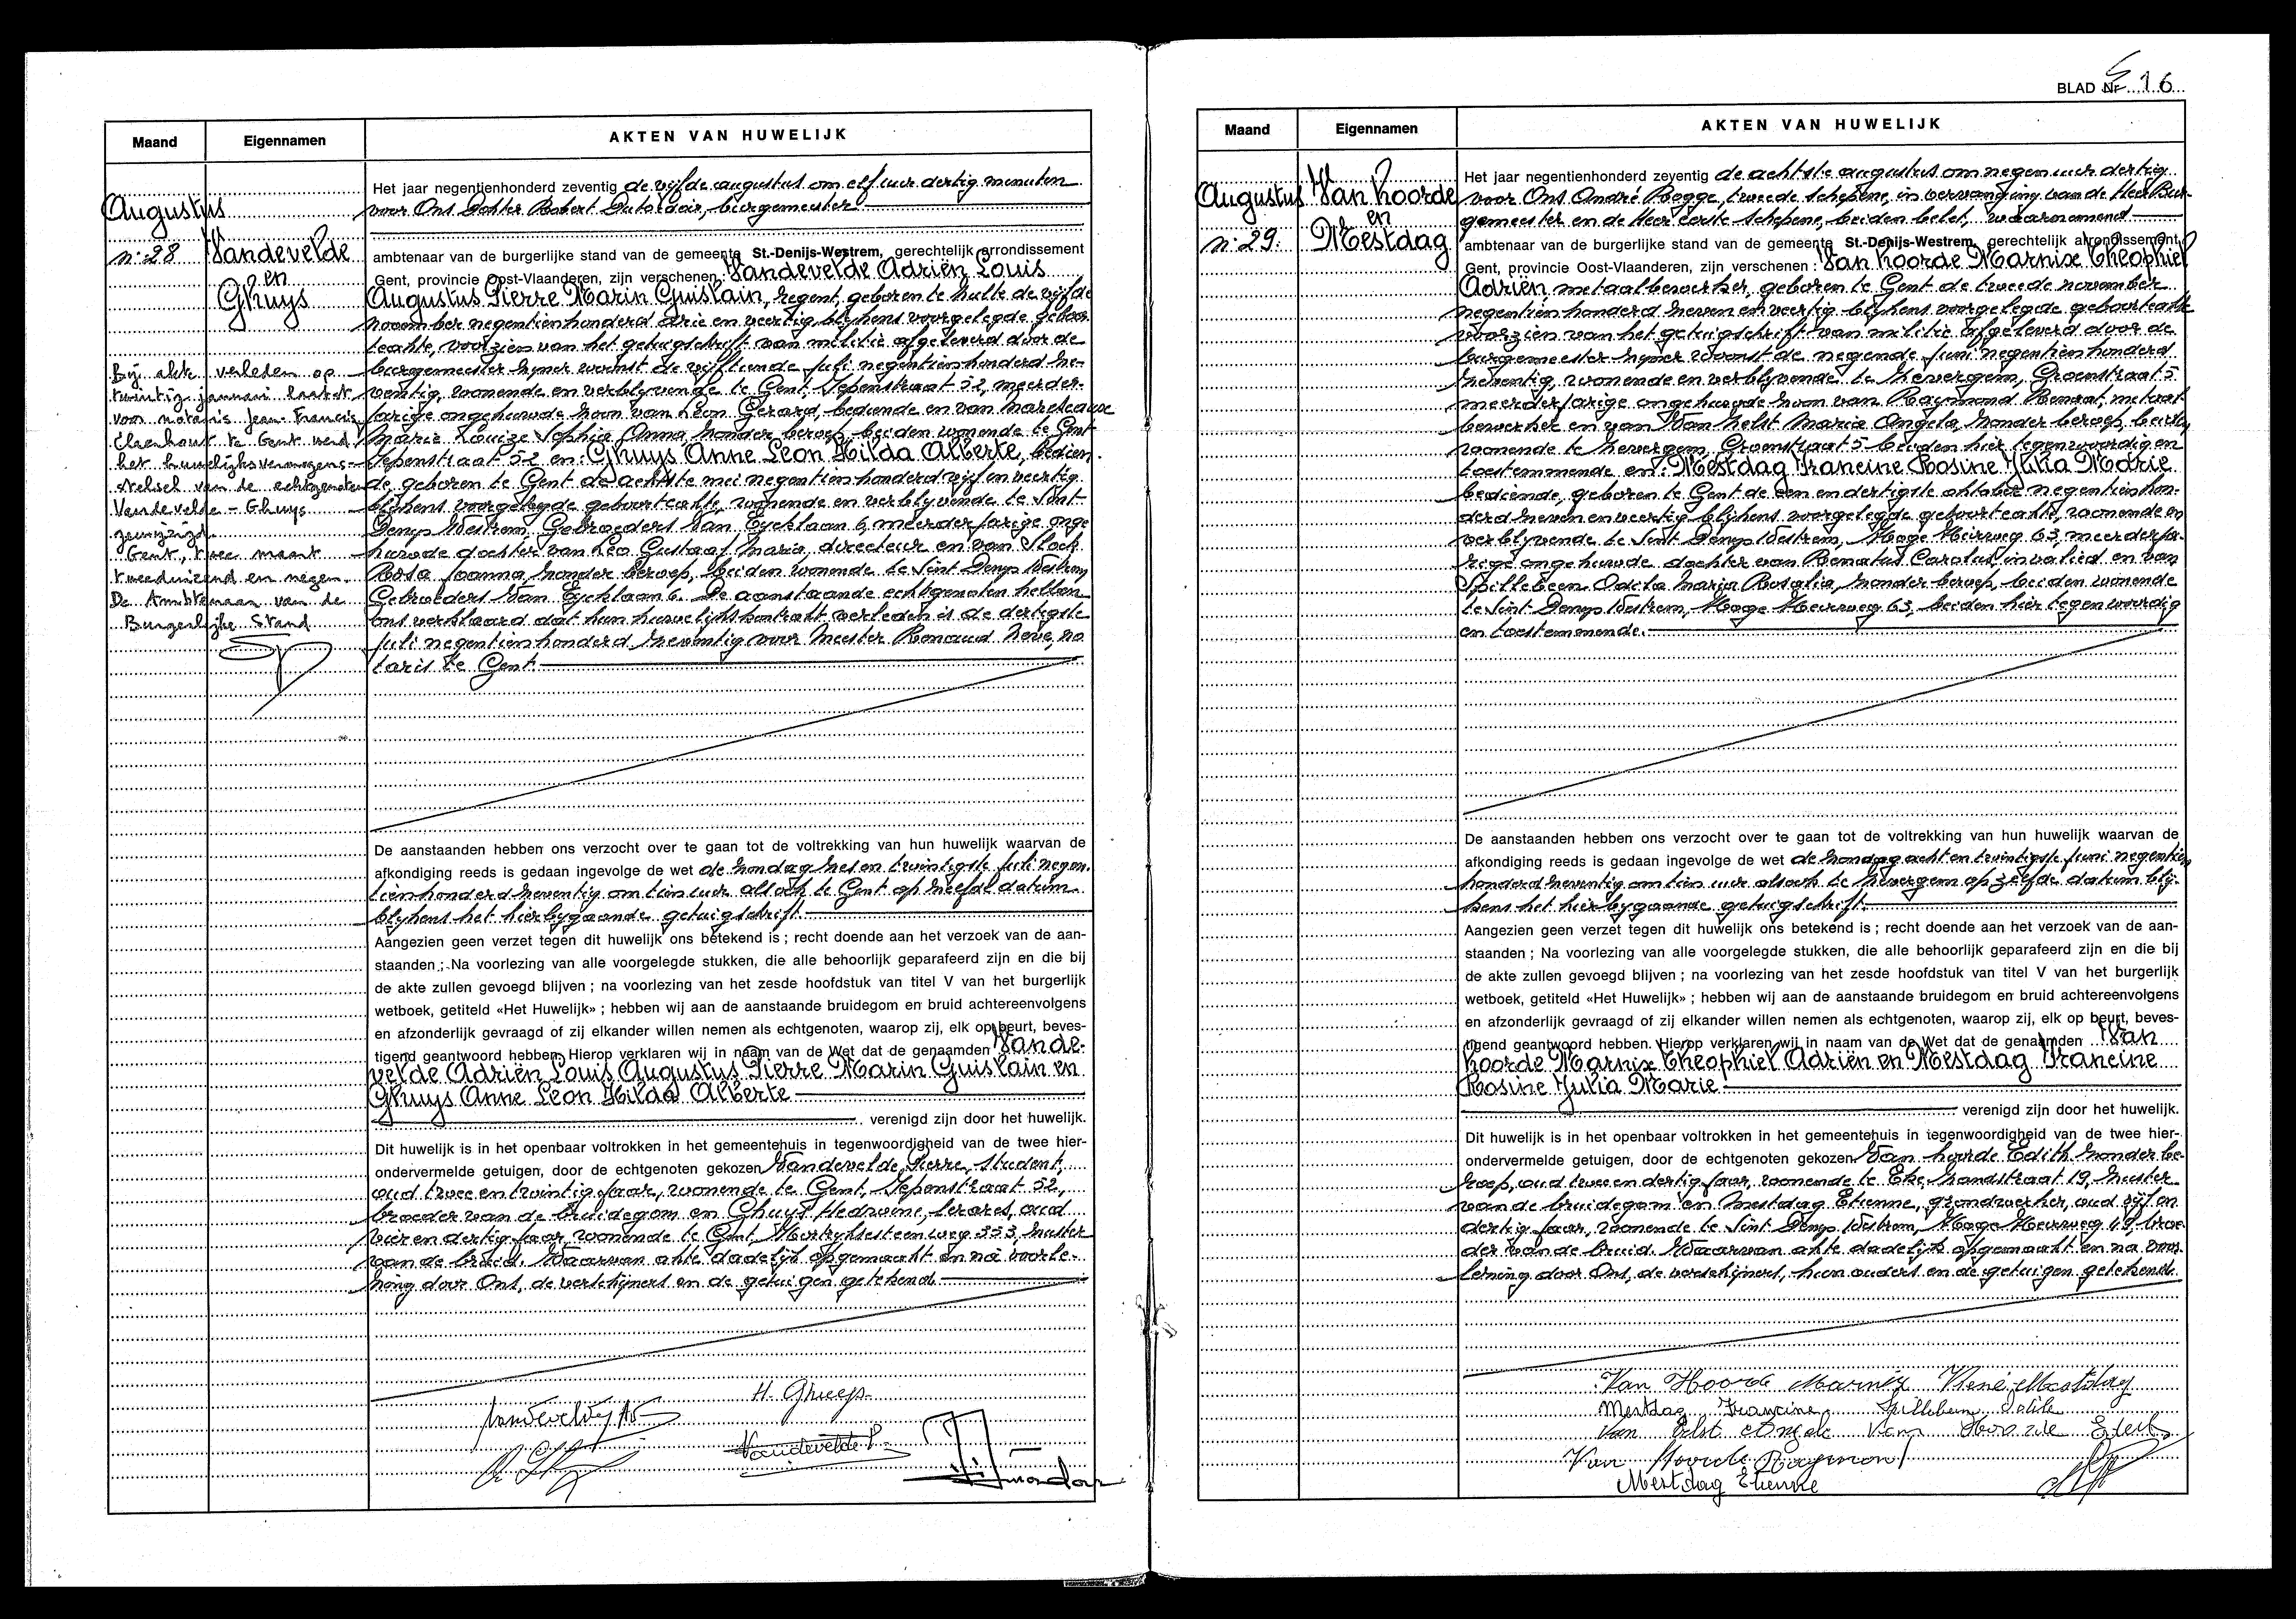 Maand
Eigennamen
AKTEN VAN HUWELIJK
Augustus
n: 28
Vandevelde
en
Ghuys
Bij akte verleden op
twintig januari laatst
voor notaris Jean-Francis
Claerhout te Gent werd
het huwelijksvermogens-
stelsel van de echtgenoten
Vandevelde - Ghuys
gewijzigd.
Gent, twee maart
tweeduizend en negen.
De Ambtenaar van de
Burgerlijke Stand
Het jaar negentienhonderd zeventig de vijfde augustus om elf uur dertig minuten
voor Ons Dokter Robert, burgemeester
ambtenaar van de burgerlijke stand van de gemeente St.-Denijs-Westrem, gerechtelijk arrondissement
Gent, provincie Oost-Vlaanderen, zijn verschenen: Vandevelde Adriën Louis
Augustus Pierre Marin Guislain, regent, geboren te Hulte de vijfde
november negentienhonderd drie en veertig blijkens voorgelegde geboor-
teakte, voorzien van het getuigschrift van militie afgeleverd door de
burgemeester zijner woonst de vijftiende juli negentienhonderd ze-
ventig, wonende en verblijvende te Gent, Iepenstraat 52, meerder-
jarige ongehuwde zoon van Leon Gerard, bediende en van Marescauxe
Marie Louize Sophia Anna zonder beroep, beiden wonende te Gent
Iepenstraat 52 en: Ghuys Anne Leon Hilda Alberte, bedien-
de geboren te Gent de achtste mei negentienhonderd vijf en veertig
blijkens voorgelegde geboorteakte, wonende en verblijvende te Sint-
Denys Westrem, Gebroeders Van Eycklaan 6, meerderjarige onge-
huwde dochter van Leo Gustaaf Maria, directeur en van Stock
Rosa Joanna, zonder beroep, beiden wonende te Sint Denys Westrem
Gebroeders Van Eycklaan 6. De aanstaande echtgenoten hebben
ons verklaard dat hun huwelijkskontrakt verleden is de dertigste
juli negentienhonderd zeventig voor Meester Renaud Neve, no
taris te Gent
De aanstaanden hebben ons verzocht over te gaan tot de voltrekking van hun huwelijk waarvan de
afkondiging reeds is gedaan ingevolge de wet de zondag zes en twintigste juli negen-
tienhonderd zeventig om tien uur alsook te Gent op zelfde datum
blijkens het hierbijgaande getuigschrift.
Aangezien geen verzet tegen dit huwelijk ons betekend is ; recht doende aan het verzoek van de aan-
staanden ; Na voorlezing van alle voorgelegde stukken, die alle behoorlijk geparafeerd zijn en die bij
de akte zullen gevoegd blijven ; na voorlezing van het zesde hoofdstuk van titel V van het burgerlijk
wetboek, getiteld «Het Huwelijk» ; hebben wij aan de aanstaande bruidegom en bruid achtereenvolgens
en afzonderlijk gevraagd of zij elkander willen nemen als echtgenoten, waarop zij, elk op beurt, beves-
tigend geantwoord hebben. Hierop verklaren wij in naam van de Wet dat de genaamden Vande-
velde Adriën Louis Augustus Pierre Marin Guislain en
Ghuys Anne Leon Hilda Alberte
verenigd zijn door het huwelijk.
Dit huwelijk is in het openbaar voltrokken in het gemeentehuis in tegenwoordigheid van de twee hier-
ondervermelde getuigen, door de echtgenoten gekozen Vandevelde Pierre, student,
oud twee en twintig jaar, wonende te Gent, Iepenstraat 52,
broeder van de bruidegom en Ghuys Hedwine, lerares, oud
vier en dertig jaar, wonende te Gent, Kortrijksesteenweg 353, zuster
van de bruid. Waarvan akte dadelijk opgemaakt en na voorle-
zing door Ons, de verschijners en de getuigen getekend.
H. Ghuys
Vandevelde P.
BLAD Nr 16
Maand
Eigennamen
AKTEN VAN HUWELIJK
Augustus
n: 29.
Van hoorde
en
Mestdag
Het jaar negentienhonderd zeventig de achtste augustus om negen uur dertig
voor Ons André Rogge, tweede schepene, in vervanging van de Heer Bur-
gemeester en de Heer eerste schepene, beiden belet, waarnemend
ambtenaar van de burgerlijke stand van de gemeente St.-Denijs-Westrem, gerechtelijk arrondissement
Gent, provincie Oost-Vlaanderen, zijn verschenen : Van hoorde Marnix Theophiel
Adriën, metaalbewerker, geboren te Gent de tweede november
negentienhonderd zeven en veertig blijkens voorgelegde geboorteakte
voorzien van het getuigschrift van militie afgeleverd door de
burgemeester zijner woonst de negende juni negentienhonderd
zeventig, wonende en verblijvende te Zevergem, Groenstraat 5
meerderjarige ongehuwde zoon van Raymond Renaat, metaal-
bewerker en van Van helst Maria Angela, zonder beroep, beiden
wonende te Zevergem, Groenstraat 5 beiden hier tegenwoordig en
toestemmende en: Mestdag Francine Rosine Julia Marie
bediende, geboren te Gent de een en dertigste oktober negentienhon-
derd zeven en veertig blijkens voorgelegde geboorteakte, wonende en
verblijvende te Sint Denys Westrem, Hoge Heirweg 63, meerderja-
rige ongehuwde dochter van Renatus Carolus, invalied en van
Spillebeen Odila Maria Rosalia, zonder beroep, beiden wonende
te Sint Denys Westrem, Hoge Heirweg 63, beiden hier tegenwoordig
en toestemmende.
De aanstaanden hebben ons verzocht over te gaan tot de voltrekking van hun huwelijk waarvan de
afkondiging reeds is gedaan ingevolge de wet de zondag acht en twintigste juni negentien
honderd zeventig om tien uur alsook te Zevergem op zelfde datum blij-
kens het hierbijgaande getuigschrift.
Aangezien geen verzet tegen dit huwelijk ons betekend is ; recht doende aan het verzoek van de aan-
staanden ; Na voorlezing van alle voorgelegde stukken, die alle behoorlijk geparafeerd zijn en die bij
de akte zullen gevoegd blijven ; na voorlezing van het zesde hoofdstuk van titel V van het burgerlijk
wetboek, getiteld «Het Huwelijk» ; hebben wij aan de aanstaande bruidegom en bruid achtereenvolgens
en afzonderlijk gevraagd of zij elkander willen nemen als echtgenoten, waarop zij, elk op beurt, beves-
tigend geantwoord hebben. Hierop verklaren wij in naam van de Wet dat de genaamden Van
hoorde Marnix Theophiel Adriën en Mestdag Francine
Rosine Julia Marie
verenigd zijn door het huwelijk.
Dit huwelijk is in het openbaar voltrokken in het gemeentehuis in tegenwoordigheid van de twee hier-
ondervermelde getuigen, door de echtgenoten gekozen Van hoorde Edith zonder be-
roep, oud twee en dertig jaar, wonende te Eke Landstraat 19, zuster
van de bruidegom en Mestdag Etienne, grondwerker, oud vijf en
dertig jaar, wonende te Sint Denys Westrem, Hoge Heirweg 49, broe-
der van de bruid. Waarvan akte dadelijk opgemaakt en na voor-
lezing door Ons, de verschijners, hun ouders en de getuigen getekend.
Van Hoorde Marnix René Mestdag
Mestdag Francine Spillebeen Odile
Van Helst Angele Van Hoorde Edith
Van Hoorde Raymond
Mestdag Etienne